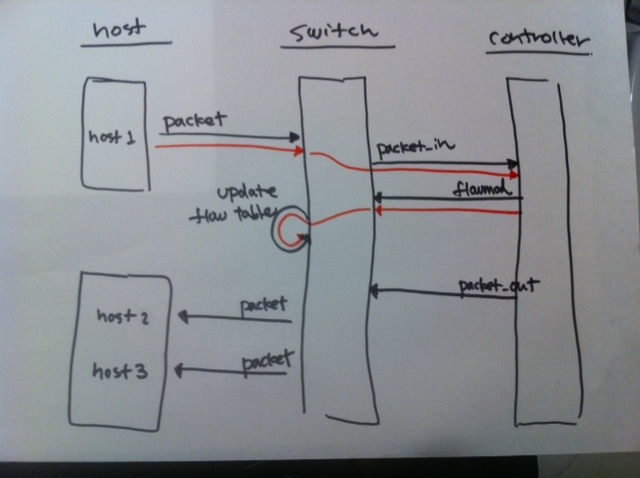 host
switch
controller
host 1
packet
packet_in
flowmod
update
flow table
packet_out
host 2
packet
host 3
packet